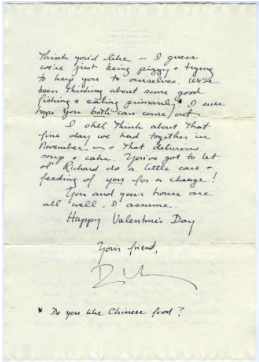 think you'd like — I guess
we're just being piggy & trying
to keep you to ourselves. We've
been thinking about some good
fishing & eating primarily * I sure
hope you both can come out.
I still think about that
fine day we had together in
November — & that delicious
soup & cake. You've got to let
ol' Richard do a little care &
feeding of you for a change!
You and yours here are
all well. I assume.
Happy Valentine's Day
Your friend,
* Do you like Chinese food?